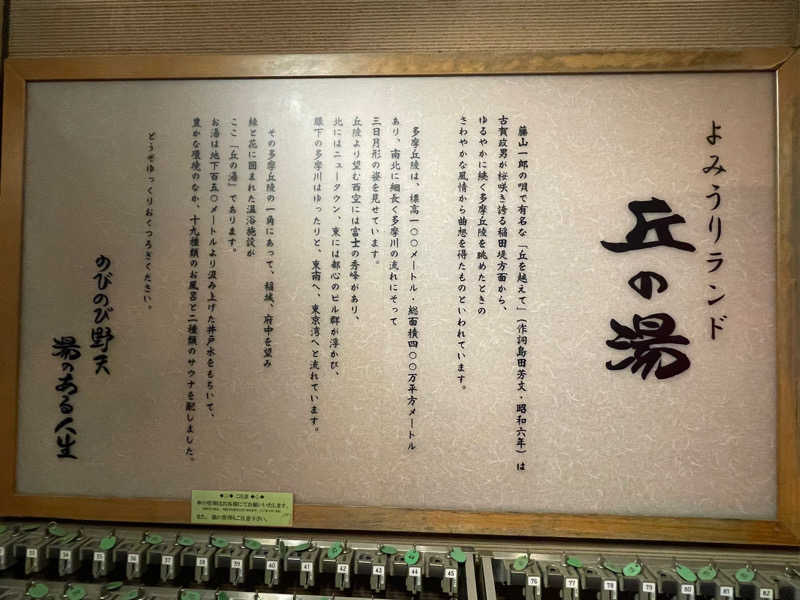 よみうりランド
丘の湯
藤山一郎の唄で有名な「丘を越えて」(作詞島田芳文・昭和六年)は
古賀政男が桜咲き誇る稲田堤方面から、
ゆるやかに続く多摩丘陵を眺めたときの
さわやかな風情から曲想を得たものといわれています。
多摩丘陵は、標高一〇〇メートル・総面積四〇〇万平方メートル
あり、南北に細長く多摩川の流れにそって
三日月形の姿を見せています。
丘陵より望む西空には富士の秀峰があり、
北にはニュータウン、東には都心のビル群が浮かび、
眼下の多摩川はゆったりと、東南へ、東京湾へと流れています。
その多摩丘陵の一角にあって、稲城、府中を望み
緑と花に囲まれた温浴施設が
ここ「丘の湯」であります。
お湯は地下百五〇メートルより汲み上げた井戸水をもちいて、
豊かな環境のなか、十九種類のお風呂と二種類のサウナを配しました。
どうぞゆっくりおくつろぎください。
のびのび野天
湯のある人生
ご注意
傘の管理はお客様にてお願いいたします。
33 34 35 36 37 38 39 40 41 42 43 44 45
76 77 78 79 80 81 82